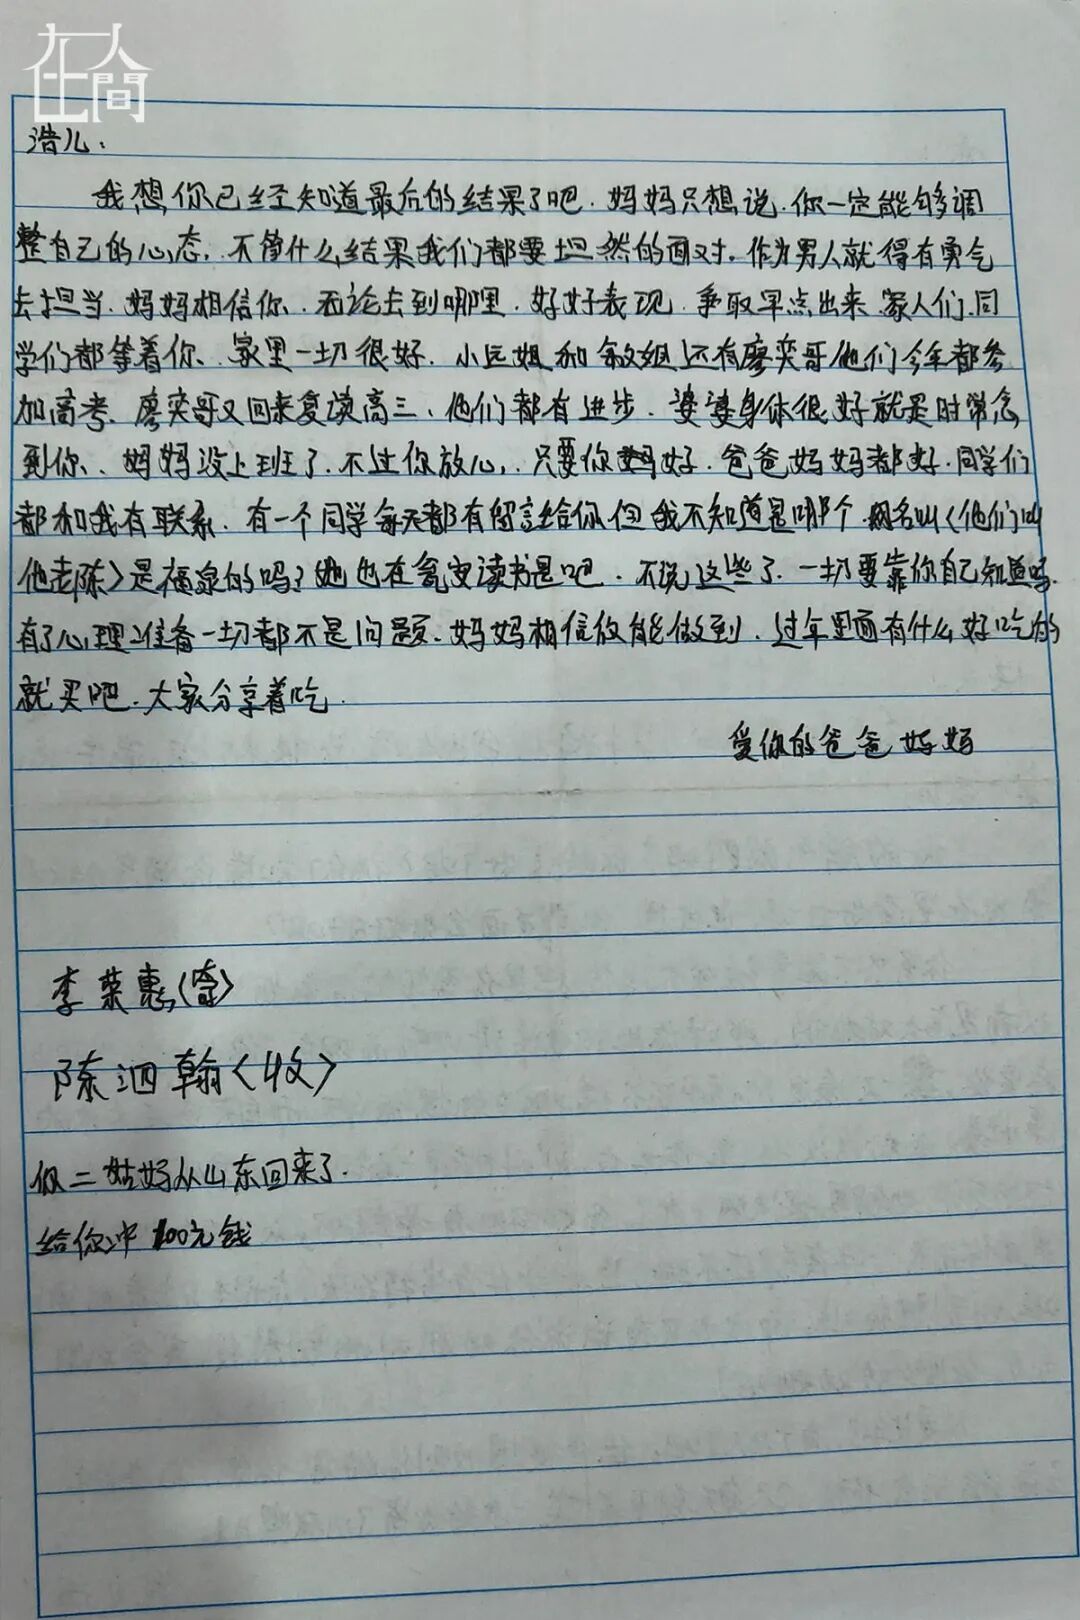 在人間
浩儿：
我想你已经知道最后的结果了吧．妈妈只想说．你一定能够调
整自己的心态．不管什么结果我们都要坦然的面对．作为男人就得有勇气
去担当．妈妈相信你．无论去到哪里．好好表现．争取早点出来．家人们．同
学们都等着你、家里一切很好．小远姐和敏姐还有廖奕哥他们今年都参
加高考．廖奕哥又回来复读高三、他们都有进步．婆婆身体很好就是时常念
到你、妈妈没上班了．不过你放心，只要你好．爸爸妈妈都好．同学们
都和我有联系．有一个同学每天都有留言给你但我不知道是哪个．网名叫〈他们叫
他老陈〉是福泉的吗？她也在瓮安读书是吧．不说这些了．一切要靠你自己知道吗．
有了心理准备一切都不是问题．妈妈相信你能做到．过年里面有什么好吃的
就买吧．大家分享着吃．
爱你的爸爸妈妈
李荣惠〈寄〉
陈泗翰〈收〉
你二姑妈从山东回来了．
给你冲100元钱